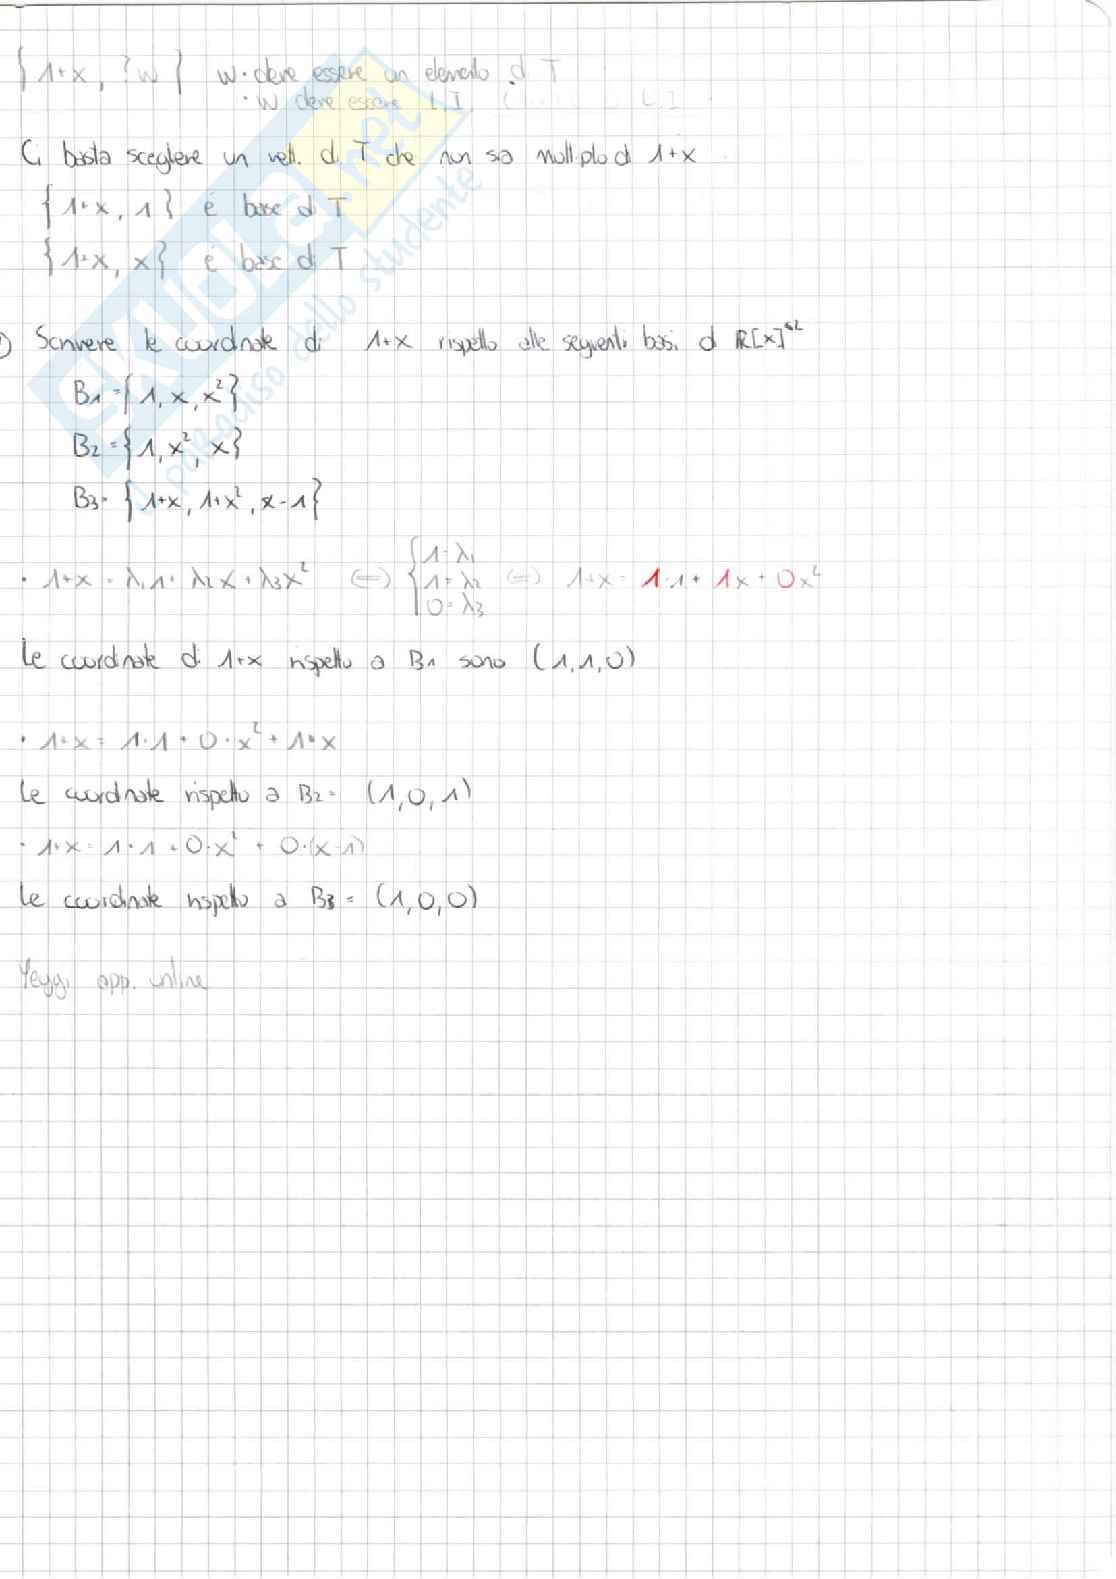 { 1+x, ? w } w · deve essere un elemento di T
· w deve essere L.I. L I
Ci basta scegliere un vett. di T che non sia multiplo di 1+x
{ 1+x, 1 } è base di T
{ 1+x, x } è base di T
) Scrivere le coordinate di 1+x rispetto alle seguenti basi di ℝ[x]^≤2
B1 = { 1, x, x² }
B2 = { 1, x², x }
B3 = { 1+x, 1+x², x-1 }
· 1+x = λ1 1 + λ2 x + λ3 x² ⇔ { 1 = λ1 1 = λ2 0 = λ3 ⇔ 1+x = 1·1 + 1x + 0x²
Le coordinate di 1+x rispetto a B1 sono (1,1,0)
· 1+x = 1·1 + 0·x² + 1·x
Le coordinate rispetto a B2 = (1,0,1)
· 1+x = 1·1 + 0·x² + 0·(x-1)
Le coordinate rispetto a B3 = (1,0,0)
Leggi app. online
SKUOLA.net
il paradiso dello studente